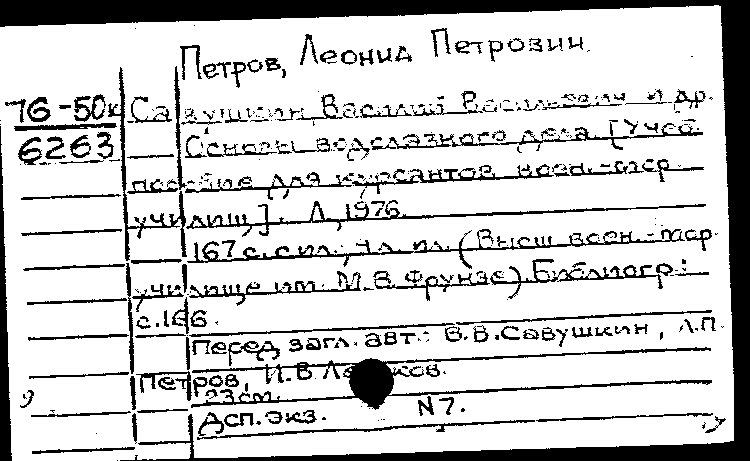 Петров, Леонид Петрович
76-50к Савушкин, Василий Васильевич и др.
6263 Основы водолазного дела. [Учеб.
пособие для курсантов воен.-мор.
училищ]. Л., 1976.
167 с. с ил.; 4 л. ил. (Высш. воен.-мор.
училище им. М.В. Фрунзе). Библиогр.:
с. 166.
Перед загл. авт.: В.В. Савушкин, Л.П.
Петров, И.В.
23 см.
Дсп. экз. N 7.